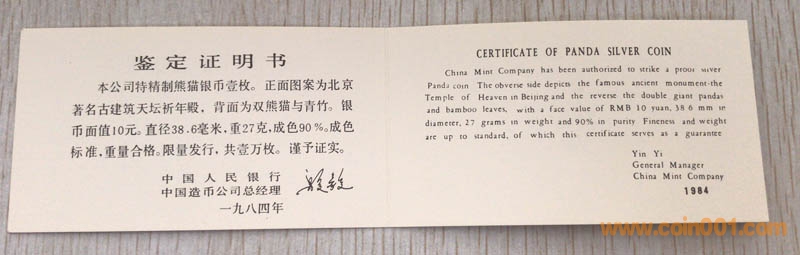 鉴定证明书
本公司特精制熊猫银币壹枚。正面图案为北京
著名古建筑天坛祈年殿，背面为双熊猫与青竹。银
币面值10元。直径38.6毫米，重27克，成色90%。成色
标准，重量合格。限量发行，共壹万枚。谨予证实。
中国人民银行
中国造币公司总经理
一九八四年
CERTIFICATE OF PANDA SILVER COIN
China Mint Company has been authorized to strike a proof silver
Panda coin The obverse side depicts the famous ancient monument-the
Temple of Heaven in Beijing and the reverse the double giant pandas
and bamboo leaves, with a face value of RMB 10 yuan, 38.6 mm in
diameter, 27 grams in weight and 90% in purity Fineness and weight
are up to standard, of which this certificate serves as a guarantee
Yin Yi
General Manager
China Mint Company
1984
www.coin001.com